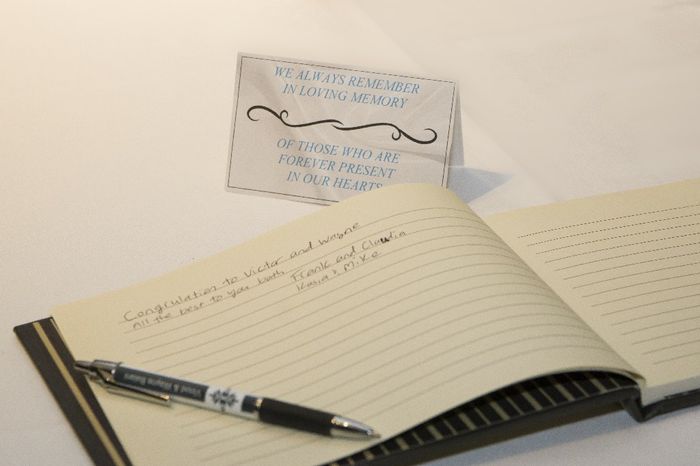 WE ALWAYS REMEMBER
IN LOVING MEMORY
OF THOSE WHO ARE
FOREVER PRESENT
IN OUR HEARTS
Congrulation to Victor and Wayne
All the best to you both
Frank and Claudia
& Mike
& Wayne